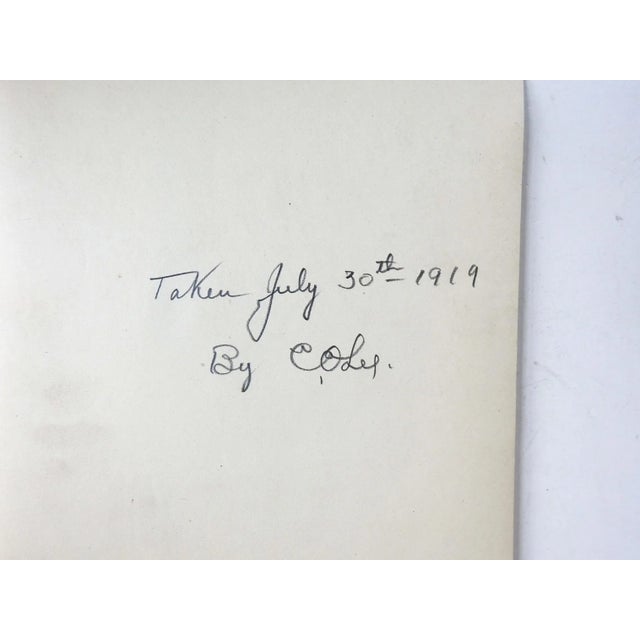 Taken July 30th 1919
By C.O. Lee.